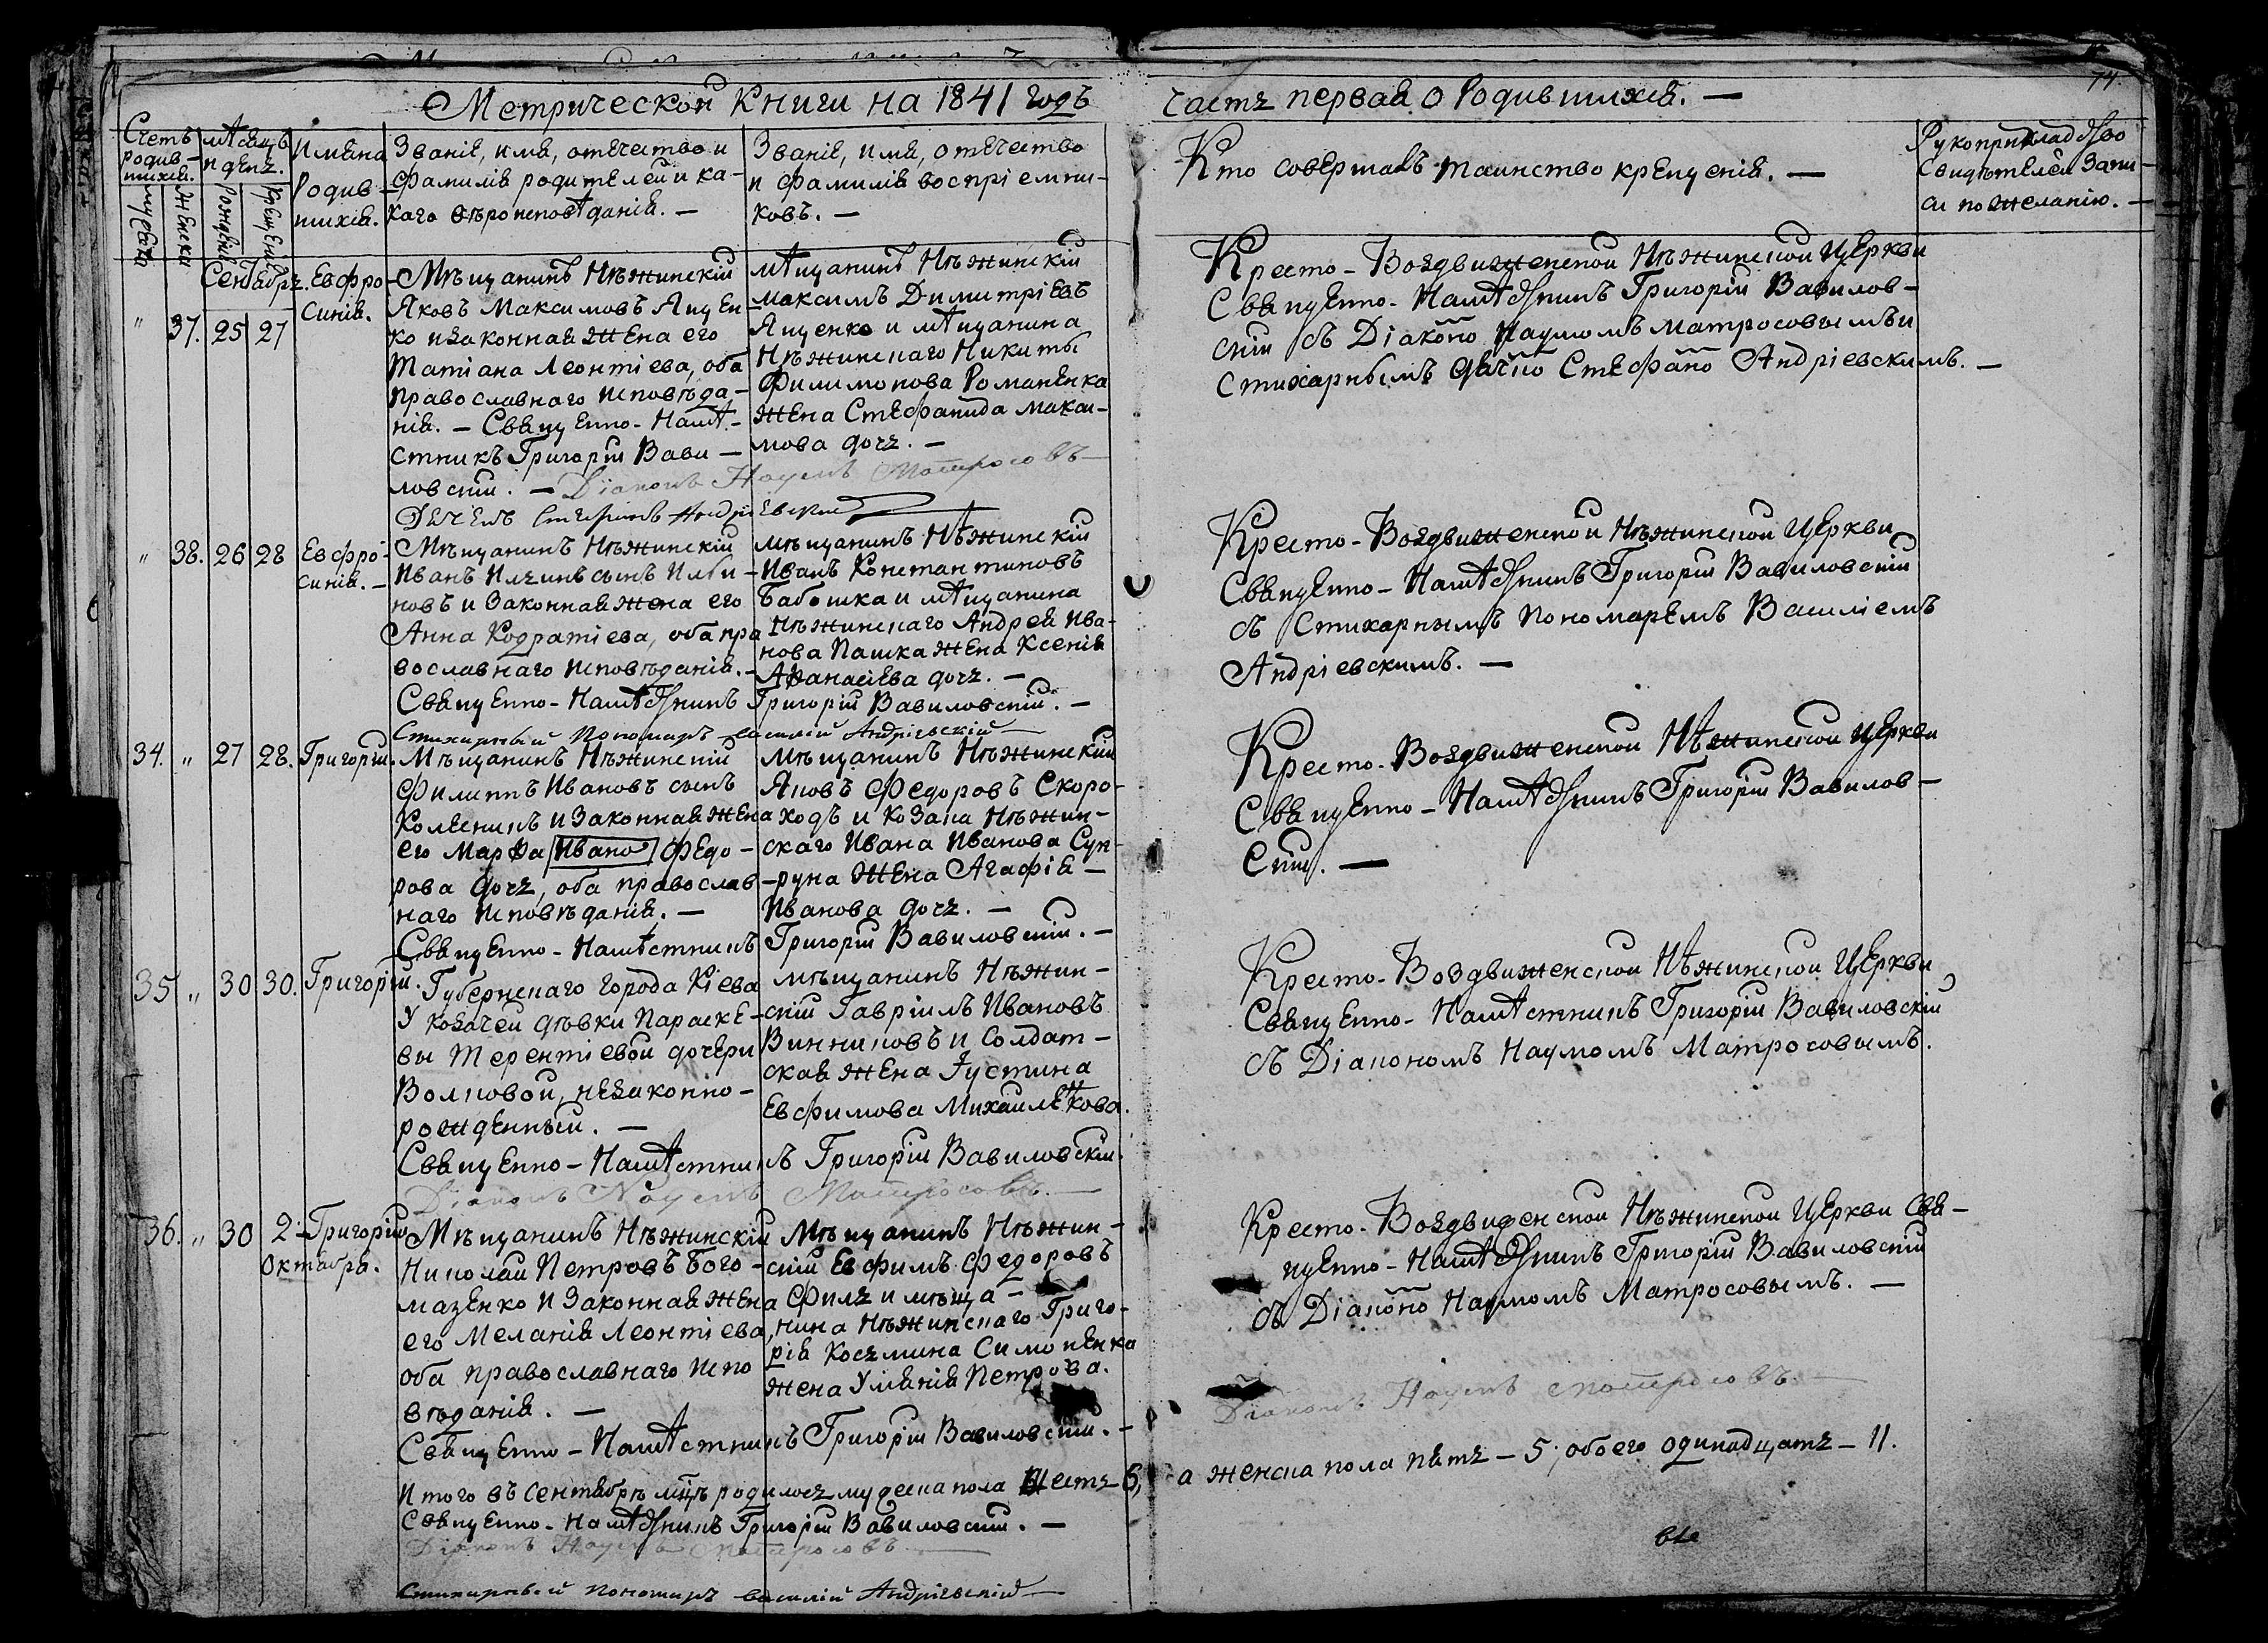 Метрической книги на 1841 годъ
часть первая о Родившихся. —
74.
Счетъ родив-шихся.
мѣсяцъ и день.
Имена Родив-шихся.
Званіе, имя, отечество и
фамилія родителей и ка-
кого вѣроисповѣданія. —
Званіе, имя, отечество
и фамилія воспріемни-
ковъ. —
Кто совершалъ таинство крещенія. —
Рукоприкладство
свидѣтелей запи-
си по желанію. —
мужеска
женска
рожденія
крещенія
Сентябрь.
" 37. 25 27
Евфро-
синія.
Мѣщанинъ Нѣжинскій
Яковъ Максимовъ Яцен-
ко и законная жена его
Татіана Леонтіева, оба
православнаго исповѣда-
нія. — Священно-Намѣ-
стникъ Григорій Вави-
ловскій. — Діаконъ Наумъ Матросовъ
Дьячекъ Стефанъ Андріевскій
мѣщанинъ Нѣжинскій
Максимъ Димитріевъ
Яценко и мѣщанина
Нѣжинскаго Никиты
Филимонова Романенка
жена Стефанида Макси-
мова дочь. —
Кресто-Воздвиженской Нѣжинской Церкви
Священно-Намѣстникъ Григорій Вавилов-
скій съ Діакономъ Наумомъ Матросовымъ и
стихарнымъ дьячкомъ Стефаномъ Андріевскимъ. —
" 38. 26 28
Евфро-
синія. —
Мѣщанинъ Нѣжинскій
Иванъ Ильинъ сынъ Ильи-
новъ и законная жена его
Анна Кодратіева, оба пра
вославнаго исповѣданія. —
Священно-Намѣстникъ Григорій Вавиловскій. —
Стихарный Пономарь Василій Андріевскій
мѣщанинъ Нѣжинскій
Иванъ Константиновъ
Бабошка и мѣщанина
Нѣжинскаго Андрея Ива-
нова Пашка жена Ксенія
Афанасіева дочь. —
Кресто-Воздвиженской Нѣжинской Церкви
Священно-Намѣстникъ Григорій Вавиловскій
съ Стихарнымъ Пономаремъ Василіемъ
Андріевскимъ. —
34. " 27 28.
Григорій.
Мѣщанинъ Нѣжинскій
Филиппъ Ивановъ сынъ
Колесникъ и законная жена
его Марфа Ивано Федо-
рова дочь, оба православ-
наго исповѣданія. —
Священно-Намѣстникъ Григорій Вавиловскій. —
мѣщанинъ Нѣжинскій
Яковъ Федоровъ Скоро-
ходъ и козака Нѣжин-
скаго Ивана Иванова Суп-
руна жена Агафія —
Иванова дочь. —
Кресто-Воздвиженской Нѣжинской Церкви
Священно-Намѣстникъ Григорій Вавилов-
скій. —
35 " 30 30.
Григорій.
Губернскаго города Кіева
у козачей дѣвки Параске-
вы Терентіевой дочери
Волковой, незаконно-
рожденный. —
Священно-Намѣстникъ Григорій Вавиловскій.
Діаконъ Наумъ Матросовъ. —
мѣщанинъ Нѣжин-
скій Гавріилъ Ивановъ
Винниковъ и Солдат-
ская жена Іустина
Евфимова Михайленкова.
Кресто-Воздвиженской Нѣжинской Церкви
Священно-Намѣстникъ Григорій Вавиловскій
съ Діакономъ Наумомъ Матросовымъ.
36. " 30 2.
Октября.
Григорій
Мѣщанинъ Нѣжинскій
Николай Петровъ Бого-
мазенко и законная жена
его Меланія Леонтіева,
оба православнаго испо
вѣданія. —
Священно-Намѣстникъ Григорій Вавиловскій. —
Мѣщанинъ Нѣжин-
скій Евфимъ Федоровъ
Филь и мѣща-
нина Нѣжинскаго Григо-
рія Косьмина Симоненка
жена Уліянія Петрова.
Кресто-Воздвиженской Нѣжинской Церкви Свя-
щенно-Намѣстникъ Григорій Вавиловскій
съ Діакономъ Наумомъ Матросовымъ. —
Діаконъ Наумъ Матросовъ. —
Итого въ сентябрѣ мцѣ родилось мужеска пола шесть - 6, а женска пола пять - 5; обоего одинадцать - 11.
Священно-Намѣстникъ Григорій Вавиловскій. —
Діаконъ Наумъ Матросовъ
Стихарный пономарь Василій Андріевскій